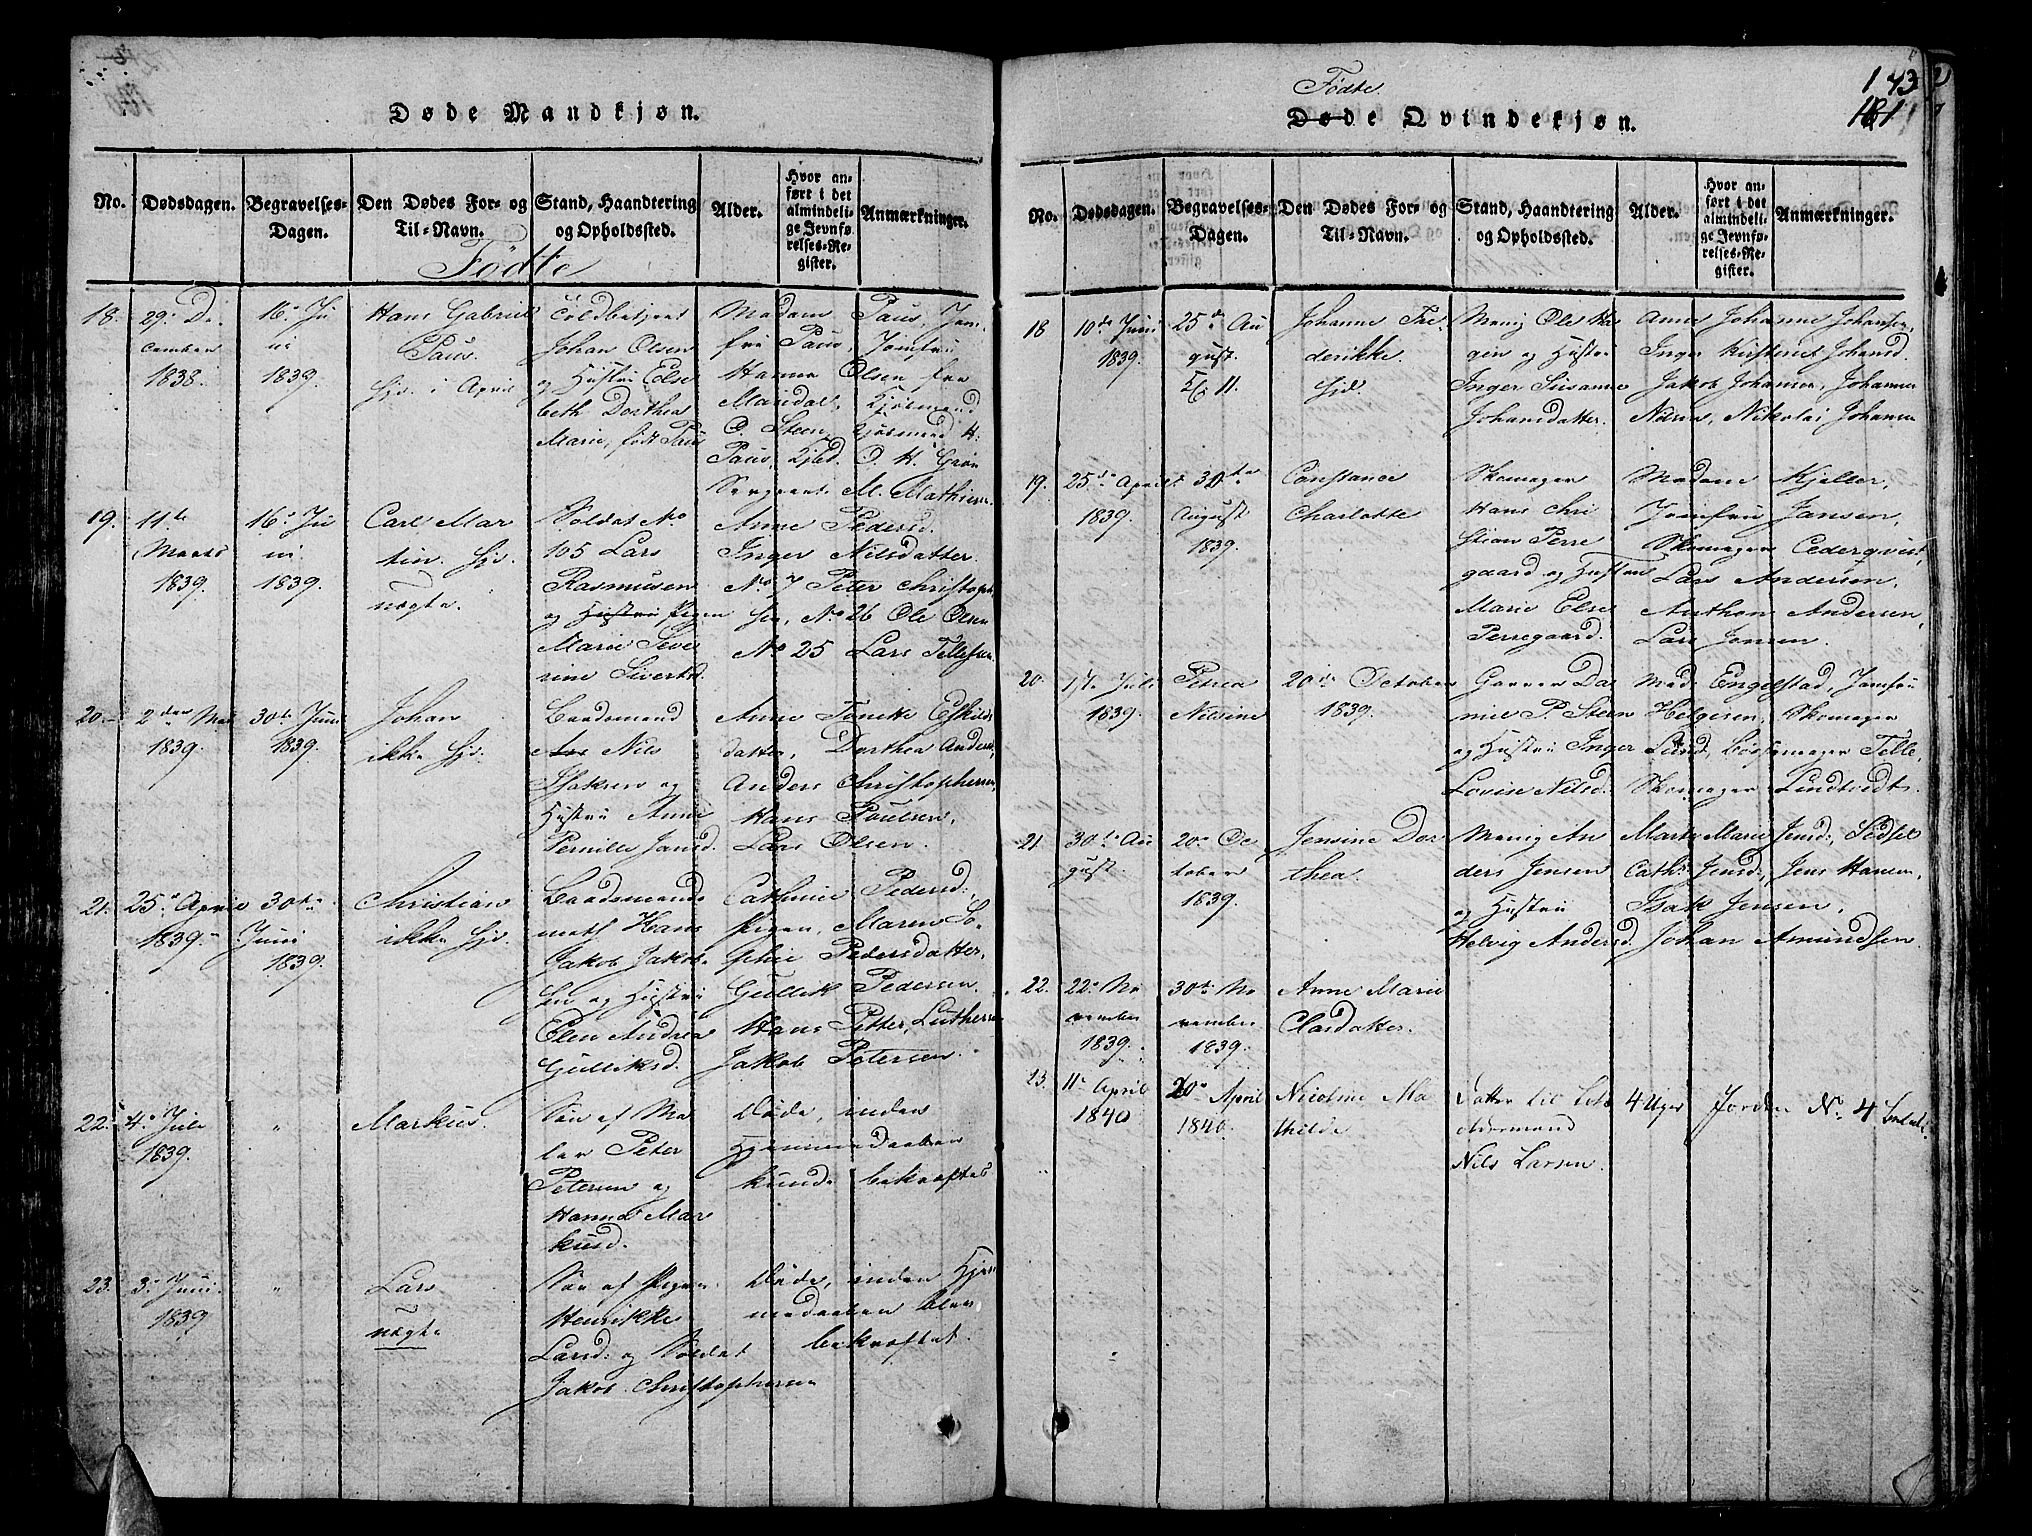 Døde Mandkjøn.
No.
Dødsdagen.
Begravelses-
Dagen.
Den Dødes For- og
Til-Navn.
Stand, Haandtering
og Opholdssted.
Alder.
Hvor an-
ført i det
almindeli-
ge Jevnfø-
relses-Re-
gister.
Anmærkninger.
Fødte
18.
29. De
cember
1838.
16. Ju
ni
1839.
Hans Gabriel
Paus.
hjd. i April
Johan Olsen
og Hustru Else
beth Dorthea
Marie, født Paus
Madam Paus, Jom-
fru Paus, Jomfru
Hanna Olsen fra
Mandal,
C. Steen,
Paus,
Sergeant M. Mathisen
19.
11te
Marts
1839.
16. Ju
ni
1839.
Carl Mar
tin. hjd.
uægte.
Soldat No
105 Lars
Rasmussen
og Hustru Pigen
Marie Seve
rine Sivertsd.
Anne Pedersd.
Inger Nilsdatter.
No. 7 Peter Christoph
sen, No 26 Ole Olsen
No 25 Lars Tellefsen.
20.
2den Mai
1839.
30te Juni
1839.
Johan
ikke hjd.
Baadsmand
Nils
Isaksen og
Hustru Anne
Pernille Jansd.
Anne Tomine Eskilds
datter, Dorthea Anders
Anders Christophersen,
Hans Paulsen,
Lars Olsen.
21.
25. April
1839.
30te
Juni
1839.
Christian
ikke hjd.
Baadsmands
mat Hans
Jakob Jakob-
sen og Hustru
Elen Andrea
Gulliksd.
Cathrine Pedersd.,
Pigen, Maren So-
phie Pedersdatter,
Gullik Pedersen,
Hans Petter Luthersen
Jakob Petersen.
22.
4. Juli
1839.
"
Markus.
Søn af Ma
ler Peter
Petersen og
Hanna Mar
kusd.
Døde, inden
Hjemmedaaben
kunde bekræftes
23.
3. Juni
1839
"
Lars
uægte
Søn af Pigen
Henrikke
Larsd: og Soldat
Jakob Christophersen
Døde, inden Hjem
medaaben blev
bekræftet.
143
181
Fødte.
Døde Qvindekjøn.
No.
Dødsdagen.
Begravelses-
Dagen.
Den Dødes For- og
Til-Navn.
Stand, Haandtering
og Opholdssted.
Alder.
Hvor an-
ført i det
almindeli-
ge Jevnfø-
relses-Re-
gister.
Anmærkninger.
18
10de Juni
1839.
25de Au
gust.
Johanne Fre
derikke.
hjd.
Ole Ha
gen og Hustru
Inger Susanne
Johansdatter.
Anne Johanne Johansen,
Inger Johansd.
Jakob Johansen, Johannes
Nikolai Johansen
19.
25de April
1839.
30te
August
1839.
Constance
Charlotte
Skomager
Hans Chri
stian Perre
gaard og Hustru
Marie Else
Perregaard.
Madam Kjeller,
Jomfru Jansen,
Skomager Cederqvist,
Lars Andersen,
Anthon Andersen,
Lars Jonsen.
20.
Juli
1839.
Petrea
Nilsine
20de October
1839.
Garver Da
niel P. Steen
og Hustru Inger
Lovise Nilsd.
Mad: Engelstad, Jomfru
Helgesen, Skomager
Lund, Bøssemager Telle
Skomager Lindtvedt.
21.
30te Au
gust.
20de Oc
tober
1839.
Jensine Dor
thea.
An
ders Jensen
og Hustru
Helvig Andersd.
Marthe Marie Jensd:, Sidsel
Cath: Jensd:, Jens Hansen,
Isak Jensen,
Johan Amundsen.
22.
22. No
vember
1839.
30te No
vember
1839.
Anne Marie
Olasdatter.
23.
11. April
1840
20. April
1840.
Nicoline Ma
thilde
Datter til Lods
oldermand
Nils Larsen.
4 Uger
Jorden No. 4